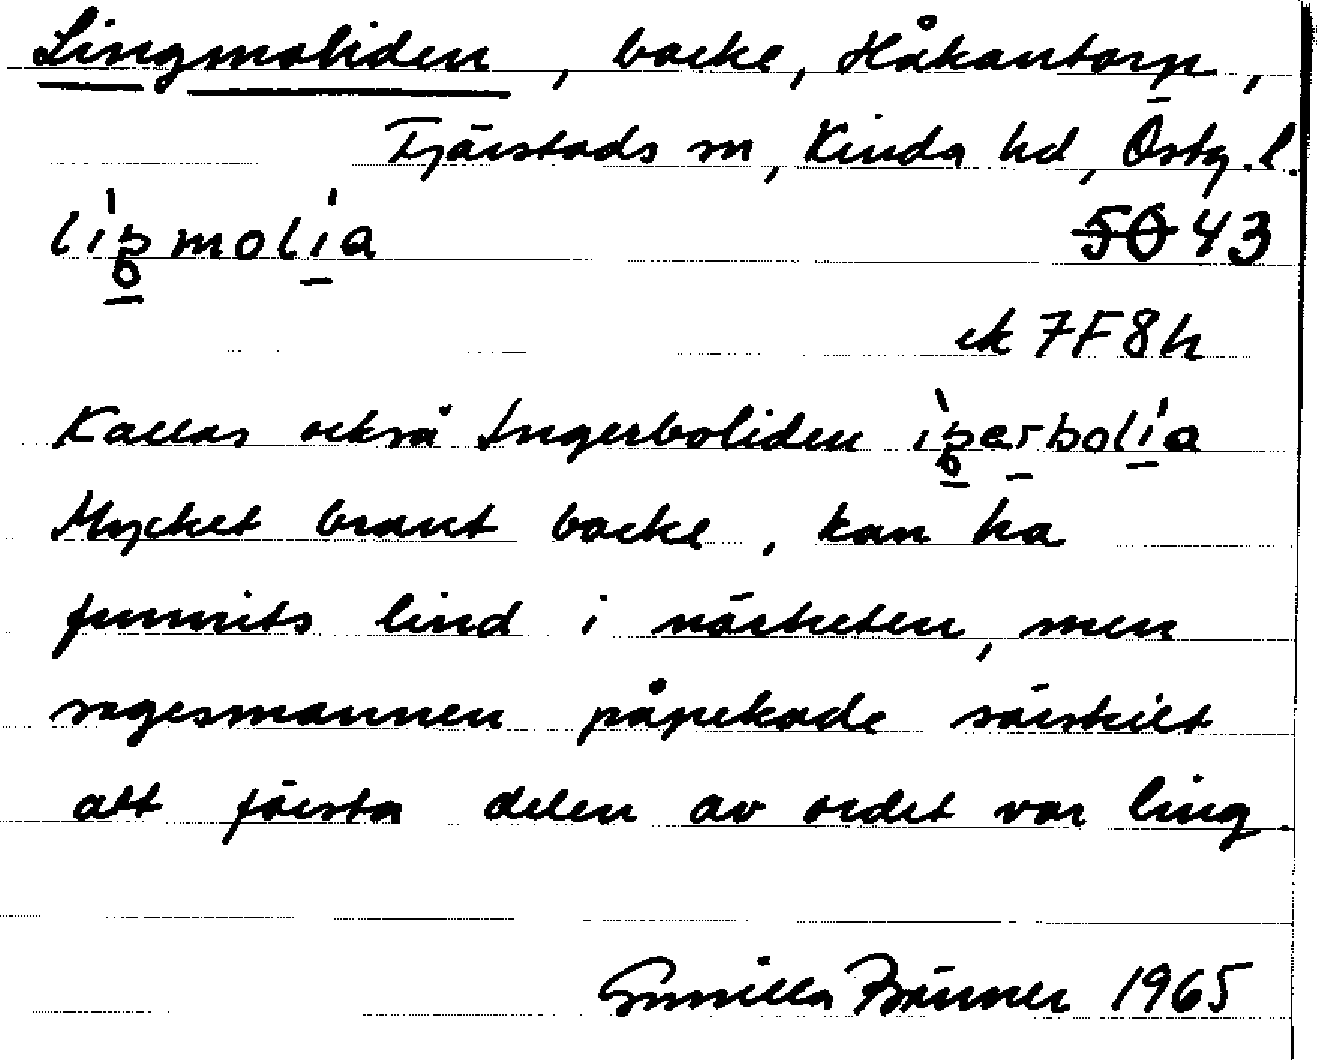 Lingmoliden, backe, Håkantorp,
Tjärstads sn, Kinda hd, Östg.l.
5̶0̶ 43
ek 7F8h
Kallas också Ingerboliden
Mycket brant backe, kan ha
funnits lind i närheten, men
sagesmannen påpekade särskilt
att första delen av ordet var ling.
Gunilla Bränner 1965